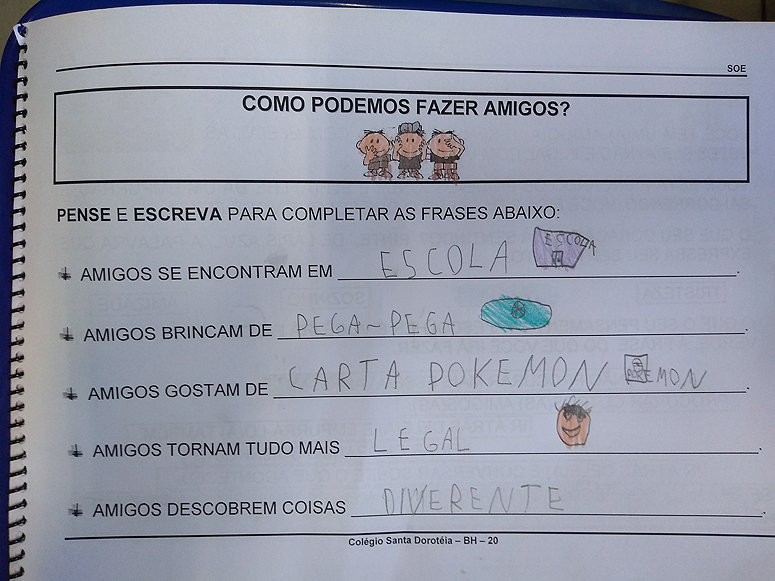 SOE
COMO PODEMOS FAZER AMIGOS?
PENSE E ESCREVA PARA COMPLETAR AS FRASES ABAIXO:
AMIGOS SE ENCONTRAM EM ESCOLA ESCOLA.
AMIGOS BRINCAM DE PEGA-PEGA.
AMIGOS GOSTAM DE CARTA POKEMON POKEMON.
AMIGOS TORNAM TUDO MAIS LEGAL.
AMIGOS DESCOBREM COISAS DIVERENTE.
Colégio Santa Dorotéia – BH – 20